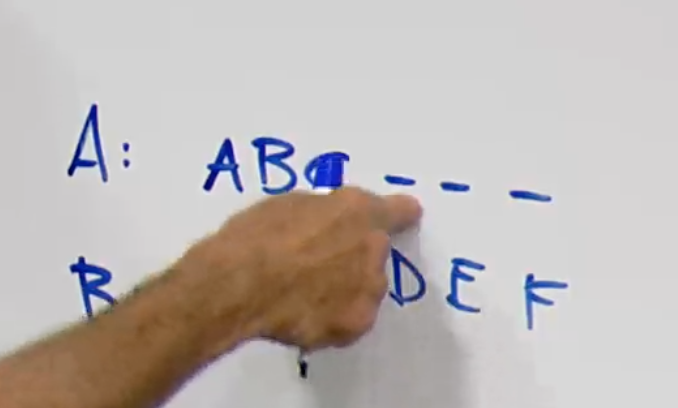 A: AB _ _ _
B D E F